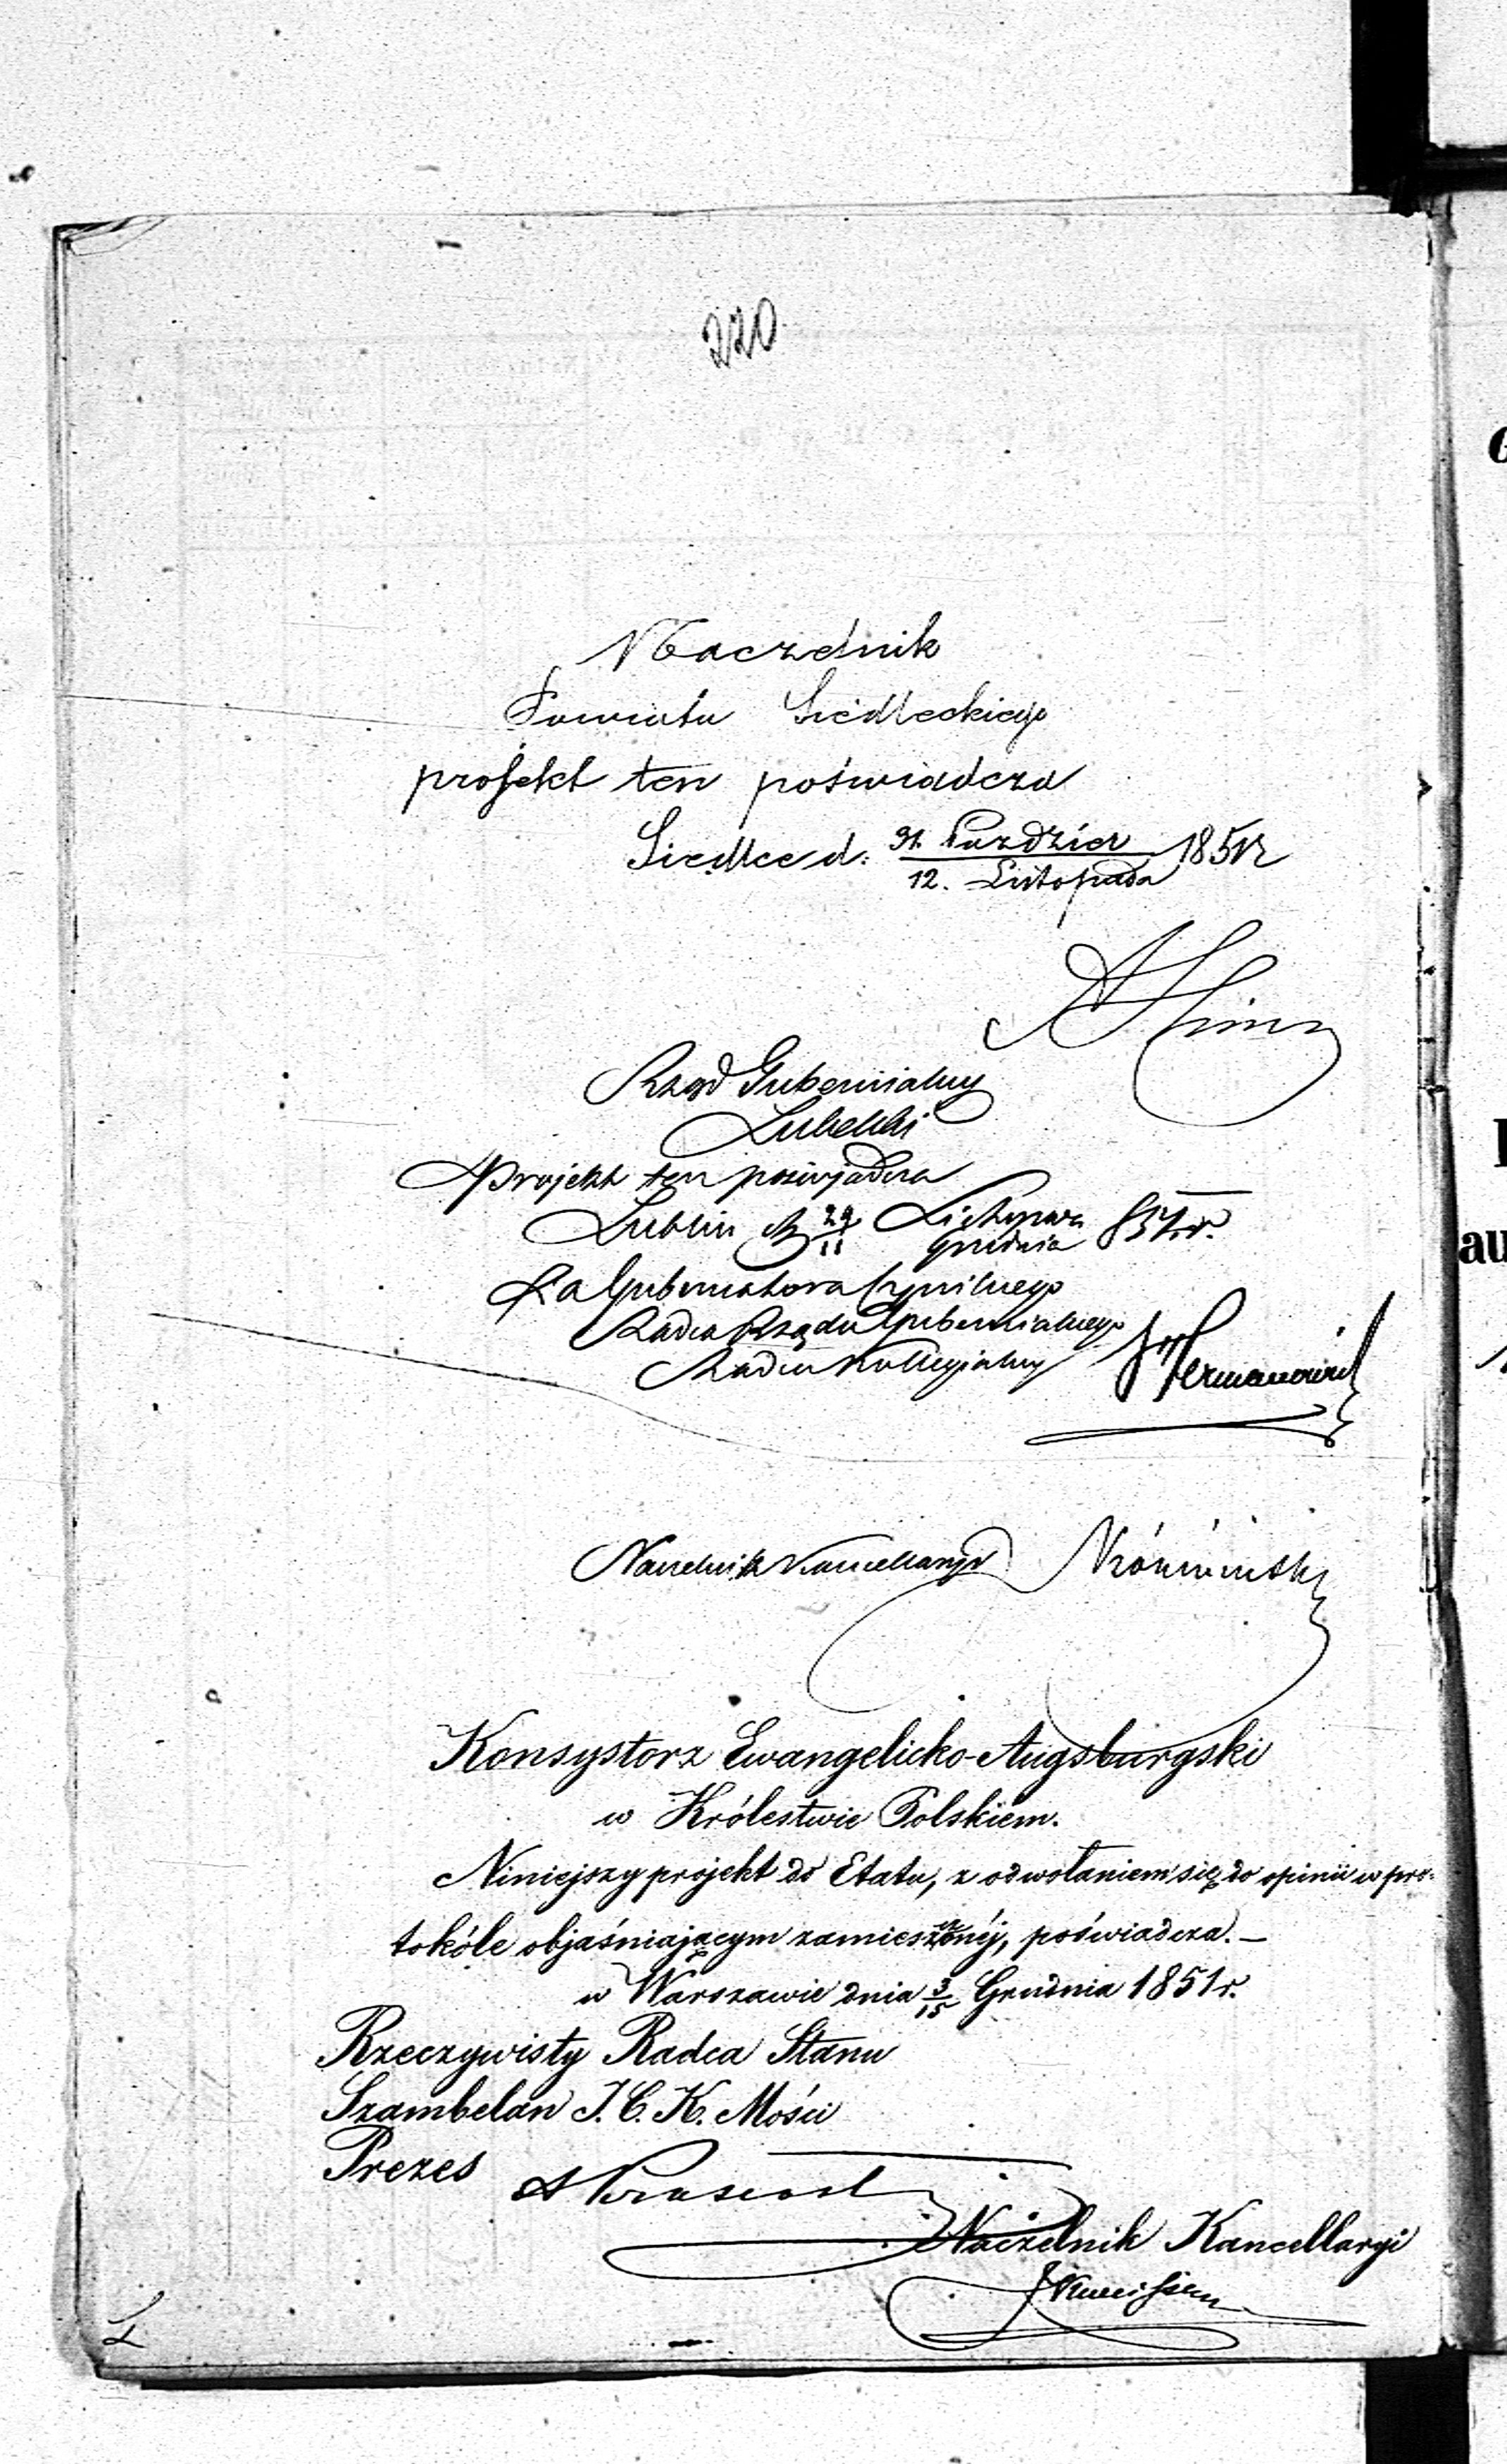 220
Naczelnik
Powiatu Siedleckiego
projekt ten poświadcza
Siedlce d. 31 Paździer / 12. Listopada 1851 r
Rząd Gubernialny
Lubelski
Projekt ten poświadcza
Lublin d. 29 / 11 Listopada / Grudnia 851. r.
Za Gubernatora Cywilnego
Radca Rządu Gubernialnego
Radca Kollegialny Hermanowicz
Naczelnik Kancellaryi
Konsystorz Ewangelicko-Augsburgski
w Królestwie Polskiem.
Niniejszy projekt do Etatu, z odwołaniem się do opinii w pro-
tokóle objaśniającym zamieszczonéj, poświadcza. —
w Warszawie dnia 3/15 Grudnia 1851 r.
Rzeczywisty Radca Stanu
Szambelan J. C. K. Mości
Prezes
Naczelnik Kancellaryi
au